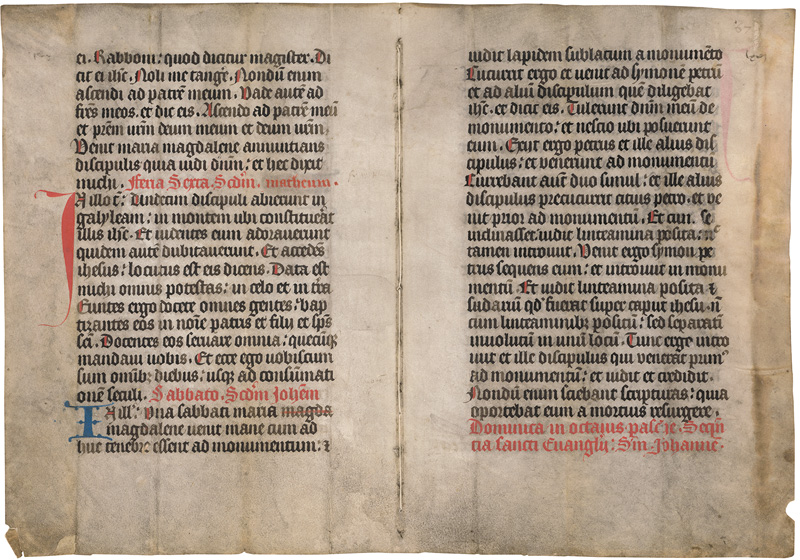 ei. Rabboni: quod dicitur magister. Di
cit ei ihc̄. Noli me tangẽ. Nondũ enim
ascendi ad patrẽ meum. Vade autẽ ad
fr̃es meos. et dic eis. Ascendo ad patrẽ meũ
et pr̃em ur̃m deum meum et deum ur̃m.
Venit maria magdalene annuntians
discipulis quia uidi dñm: et hec dixit
michi. Feria Sexta. Scd̃m. matheum.
In illo t̃. Undecim discipuli abierunt in
galyleam: in montem ubi constituerat
illis ihc̄. Et uidentes eum adorauerunt
quidem autẽ dubitauerunt. Et accedẽs
ihesus: locutus est eis dicens. Data est
michi omnis potestas: in celo et in tr̃a
Euntes ergo docete omnes gentes: bap
tizantes eos in noĩe patris et filii et sp̃s
sc̃i. Docentes eos seruare omnia: quecũq̃
mandaui uobis. Et ecce ego uobiscum
sum omnib; diebus: usq̃ ad consũmati
onẽ seculi. Sabbato. Scd̃m Joh̃em
In ill̃: Una sabbati maria magda
magdalene uenit mane cum ad
huc tenebre essent ad monumentum: ⁊
uidit lapidem sublatum a monumẽto
Cucurrit ergo et uenit ad symonẽ petrũ
et ad aliũ discipulum quẽ diligebat
ihc̄. et dicit eis. Tulerunt dñm meũ de
monumento: et nescio ubi posuerunt
eum. Exiit ergo petrus et ille alius dis
cipulus: et uenerunt ad monumentũ
Currebant aut̃ duo simul: et ille alius
discipulus precucurrit citius petro. et ve
nit prior ad monumentũ. Et cum se
inclinasset: uidit linteamina posita: nõ
tamen introiuit. Venit ergo symon pe
trus sequens eum: et introiuit in monu
mentũ. Et uidit linteamina posita ⁊
sudariũ qd̃ fuerat super caput ihesu. nõ
cum linteaminib; positũ: sed separatĩ
inuolutũ in unũ locũ. Tunc ergo intro
iuit et ille discipulus qui venerat primꝰ
ad monumentũ: et uidit et credidit.
Nondũ enim sciebant scripturas: quia
oportebat eum a mortuis resurgere.
Dominica in octauis pasce. Sequẽ
tia sancti Euanglij: Sm̃ Johannẽ.